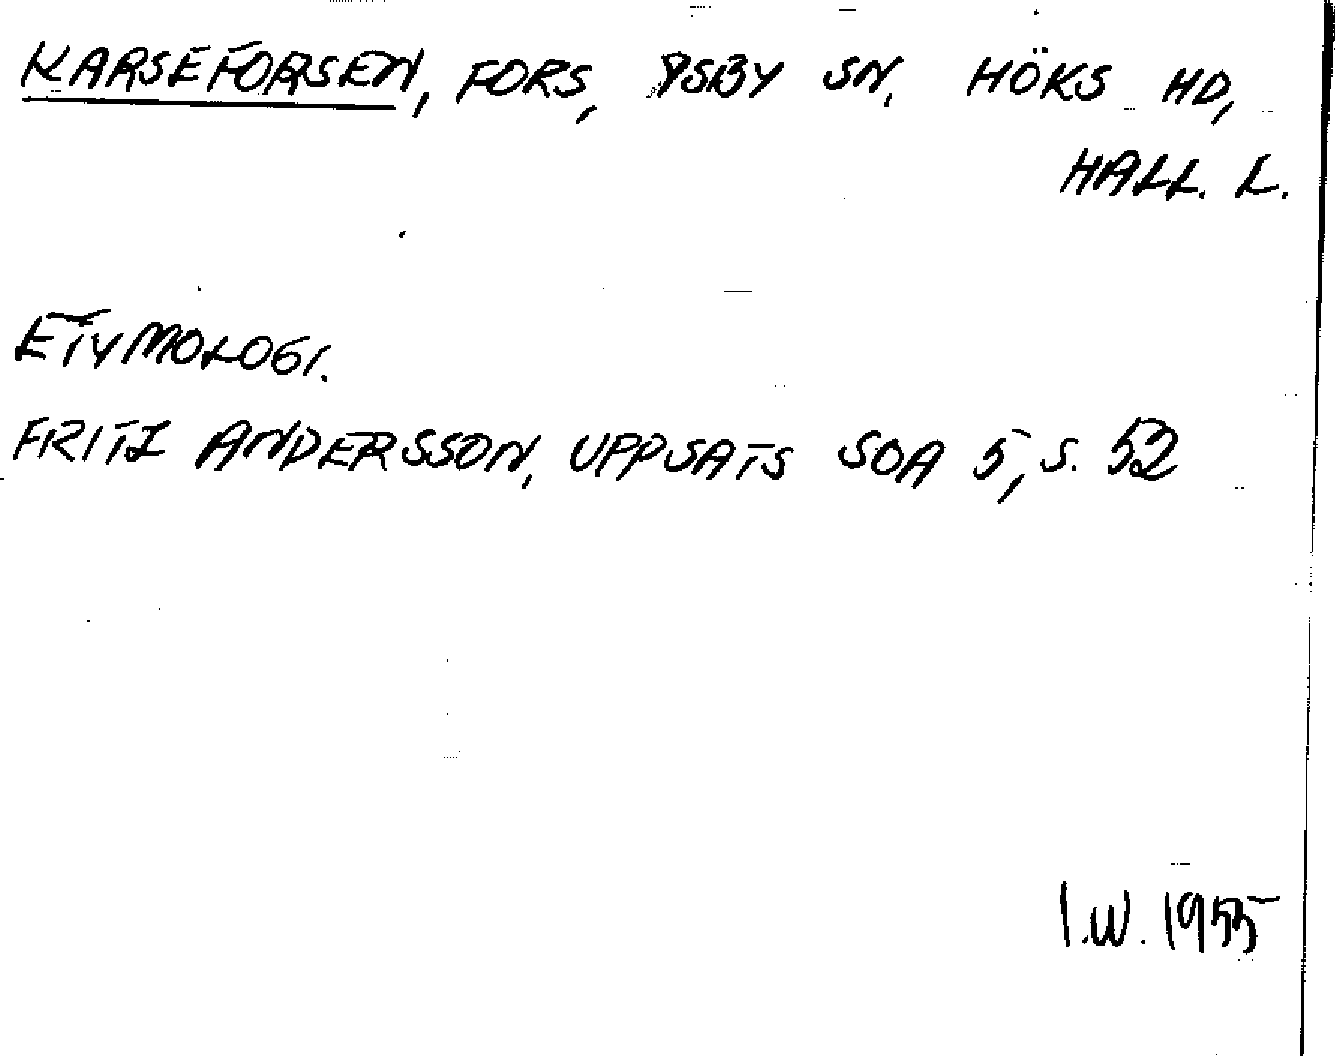 KARSEFORSEN, FORS, YSBY SN. HÖKS HD,
HALL. L.
ETYMOLOGI.
FRITZ ANDERSSON, UPPSATS SOA 5, S. 52
I.W. 1955